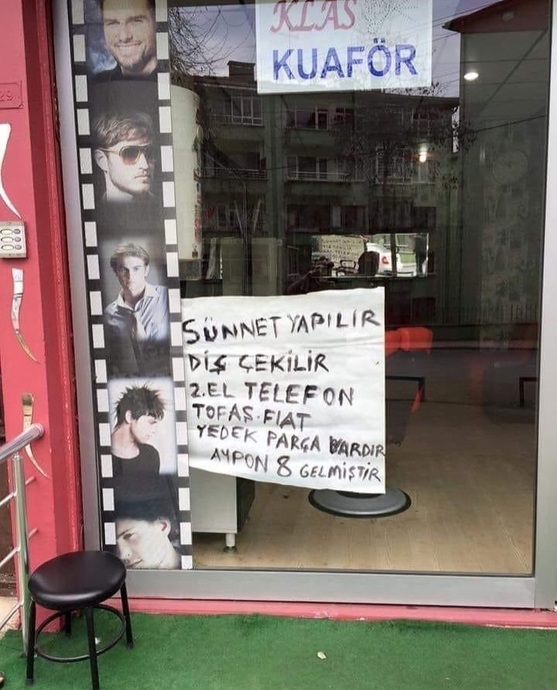 KLAS
KUAFÖR
29
SÜNNET YAPILIR
DİŞ ÇEKİLİR
2.EL TELEFON
TOFAŞ.FIAT
YEDEK PARÇA VARDIR
AYPON 8 GELMİŞTİR